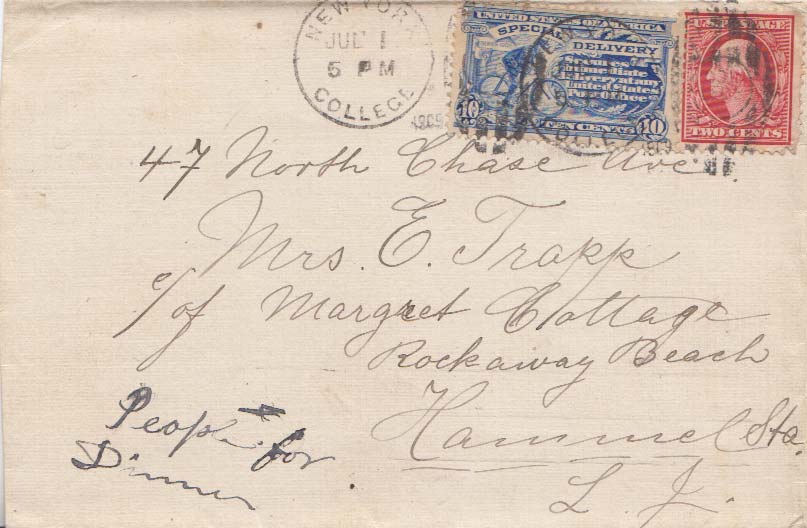 NEW YORK
JUL 1
5 PM
COLLEGE
1909
UNITED STATES OF AMERICA
SPECIAL DELIVERY
Secures
Immediate
Delivery at any
United States
Post Office
10 TEN CENTS 10
U.S. POSTAGE
TWO CENTS
47 North Chase Ave.
Mrs. E. Trapp
c/of Margret Cottage
Rockaway Beach
Hammel Sta.
L. I.
People for
Dinner